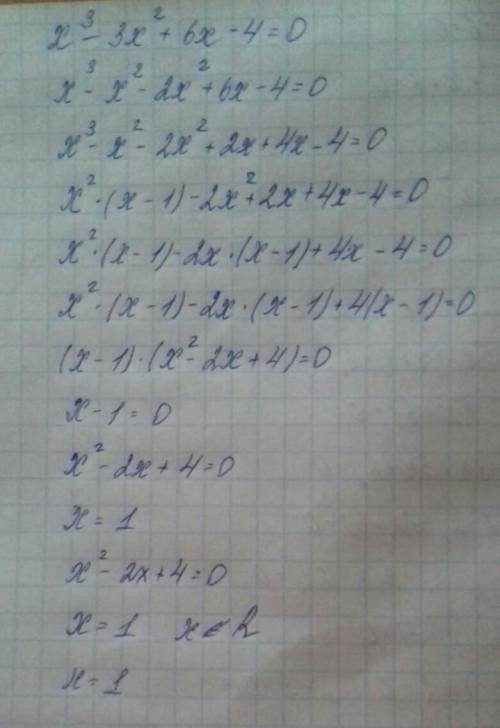 x³ - 3x² + 6x - 4 = 0
x³ - x² - 2x² + 6x - 4 = 0
x³ - x² - 2x² + 2x + 4x - 4 = 0
x² · (x - 1) - 2x² + 2x + 4x - 4 = 0
x² · (x - 1) - 2x · (x - 1) + 4x - 4 = 0
x² · (x - 1) - 2x · (x - 1) + 4(x - 1) = 0
(x - 1) · (x² - 2x + 4) = 0
x - 1 = 0
x² - 2x + 4 = 0
x = 1
x² - 2x + 4 = 0
x = 1 x ∈ R
x = 1